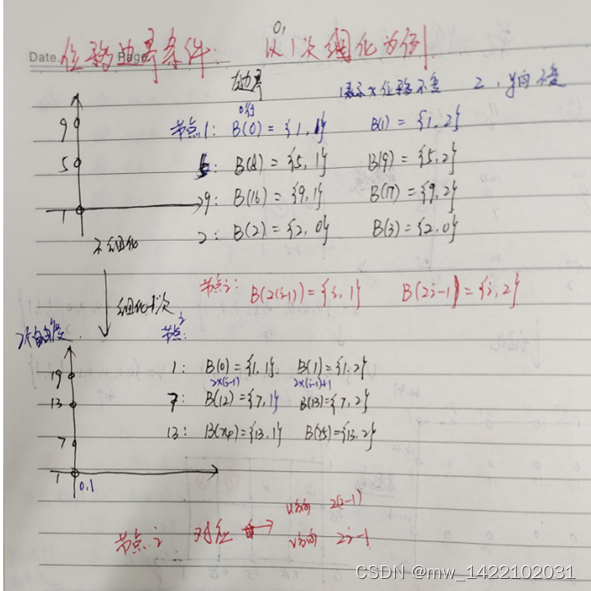 0,
位移边界条件: 以1次细化为例
Date. Page
左边界 1表示x位移不变 2, y向不变
0行
9 节点1: B(0) = {1, 1} B(1) = {1, 2}
5 5: B(8) = {5, 1} B(9) = {5, 2}
9: B(16) = {9, 1} B(17) = {9, 2}
1 2: B(2) = {2, 0} B(3) = {2, 0}
不细化
节点i: B(2(i-1)) = {i, 1} B(2i-1) = {i, 2}
细化1次
2个自由度 节点i
1: B(0) = {1, 1} B(1) = {1, 2}
19 2×(i-1) 2×(i-1)+1
13 7: B(12) = {7, 1} B(13) = {7, 2}
7 13: B(24) = {13, 1} B(25) = {13, 2}
1
0,1
u方向 2(i-1)
节点i 对应 →
v方向 2i-1
CSDN @mw_1422102031